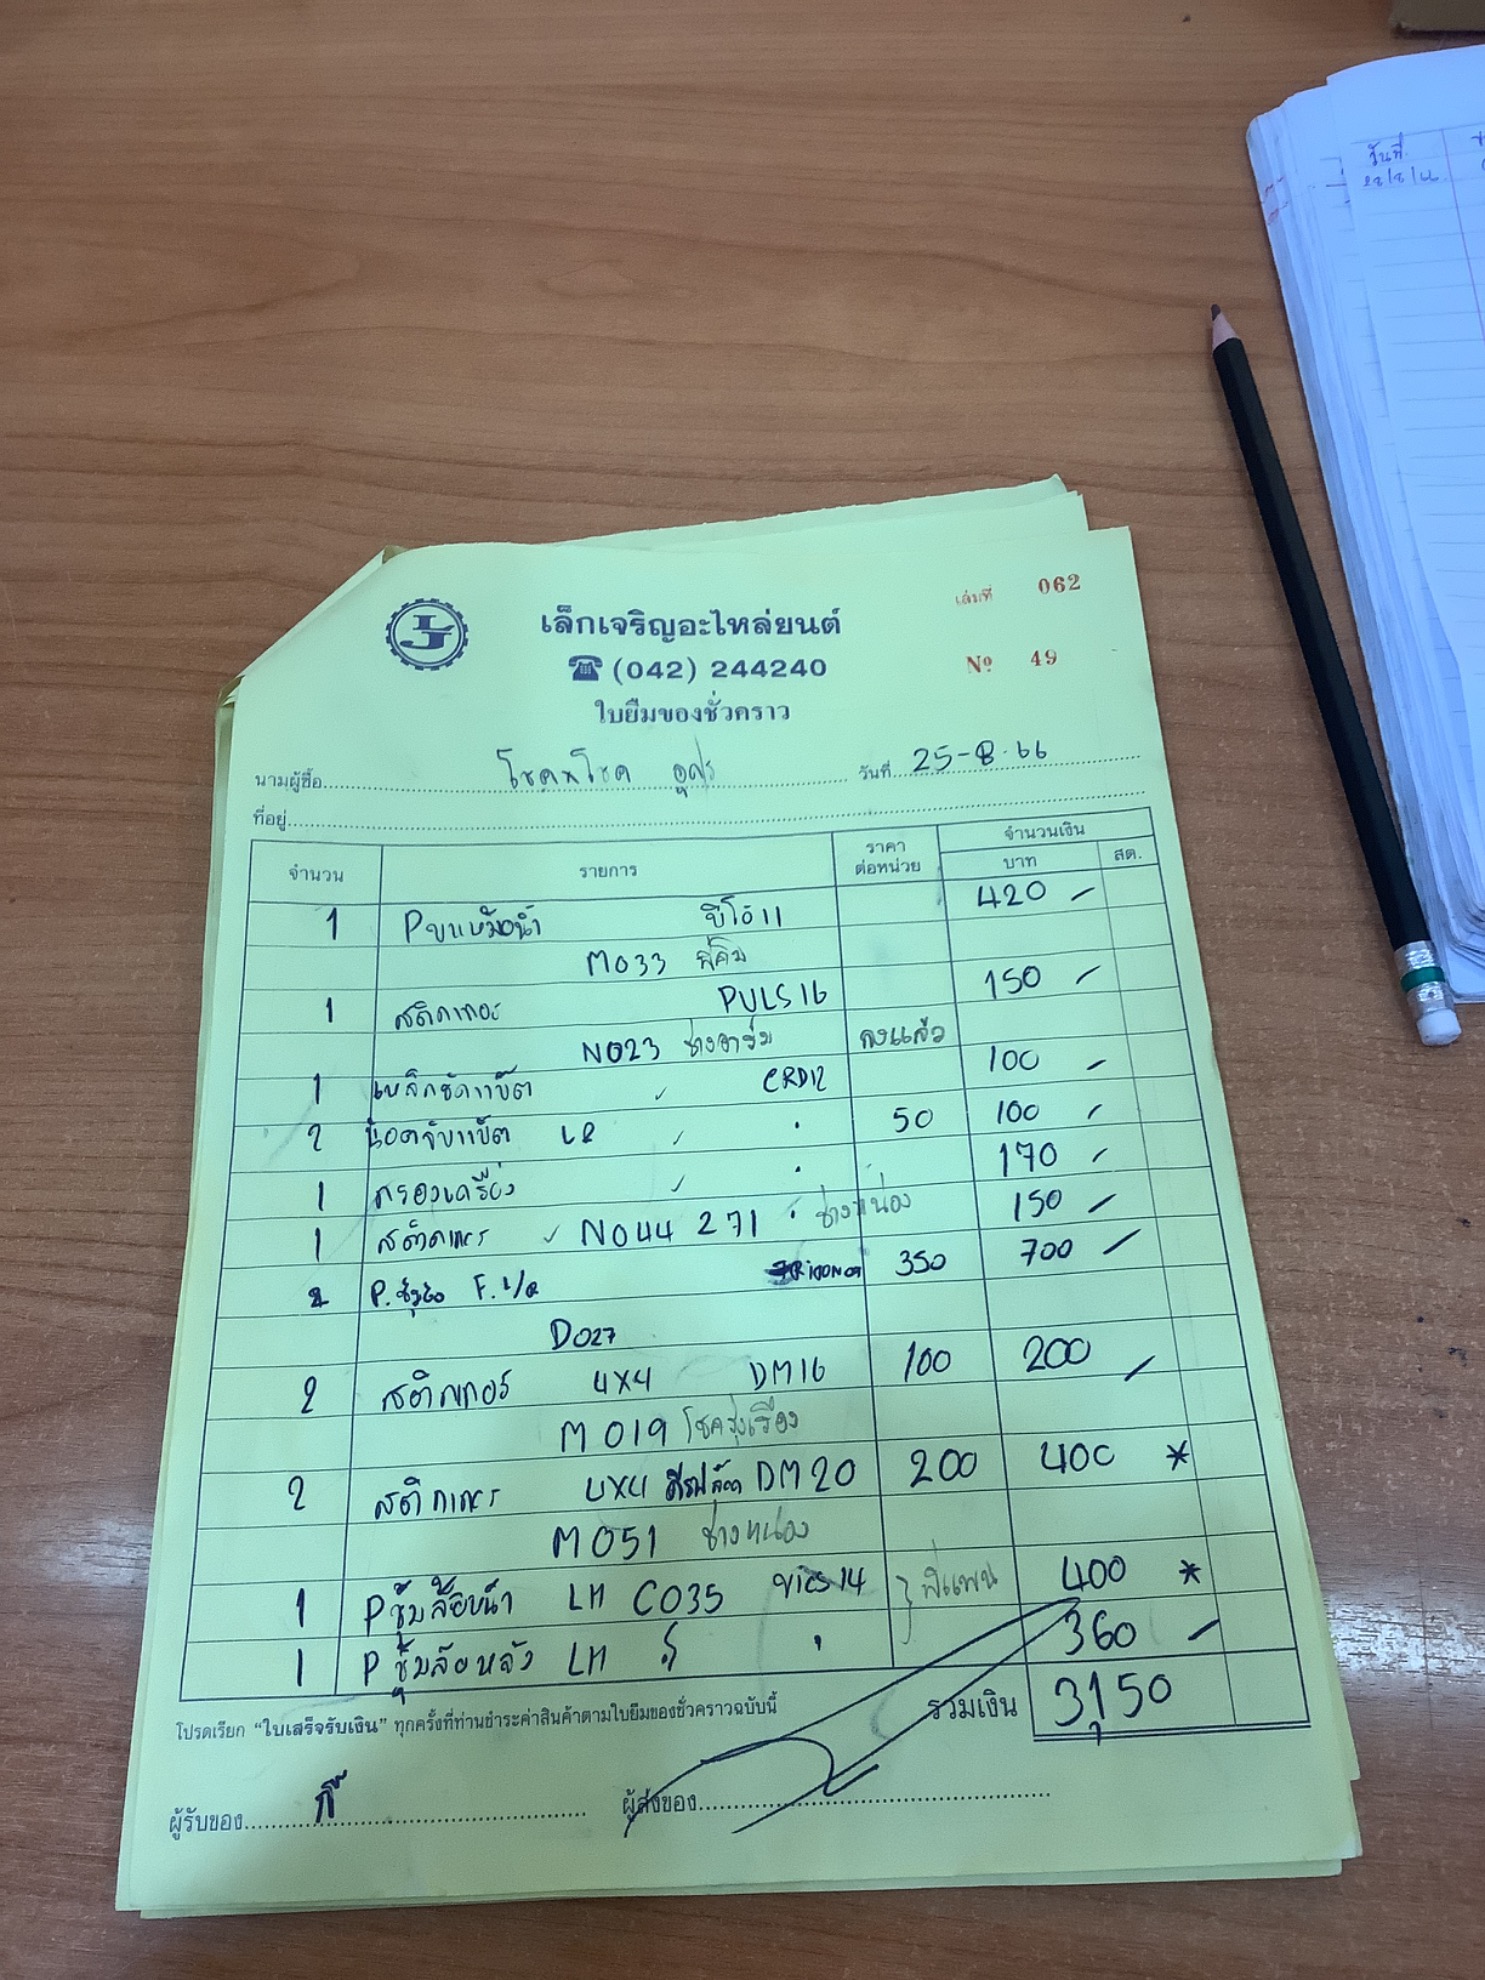 วันที่
LJ
เล็กเจริญอะไหล่ยนต์
เล่มที่ 062
☎ (042) 244240
Nº 49
ใบยืมของชั่วคราว
นามผู้ซื้อ โชคNโชค อุดร วันที่ 25-8-66
ที่อยู่
จำนวน รายการ ราคาต่อหน่วย จำนวนเงิน
บาท สต.
1 Pบนหม้อน้ำ วีโก้11 420 -
M033 พี่คิม
1 สติกเกอร์ PULS16 150 -
N023 ลงแล้ว
1 เหล็กขัดแบ็ต CRD12 100 -
2 น็อตจับแบ็ต LR 50 100 -
1 กรองเครื่อง 170 -
1 สติกเกอร์ N044 271 ช่างหน่อง 150 -
2 P.ซุ้มล้อ F. L/R 350 700 -
D027
2 สติกเกอร์ 4X4 DM16 100 200 -
M019 โชครุ่งเรือง
2 สติกเกอร์ 4X4 DM20 200 400 *
M051 ช่างหน่อง
1 Pซุ้มล้อหน้า LH C035 vios14 พี่แพน 400 *
1 Pซุ้มล้อหลัง LH 360 -
โปรดเรียก "ใบเสร็จรับเงิน" ทุกครั้งที่ท่านชำระค่าสินค้าตามใบยืมของชั่วคราวฉบับนี้ รวมเงิน 3,150
ผู้รับของ กี้ ผู้ส่งของ